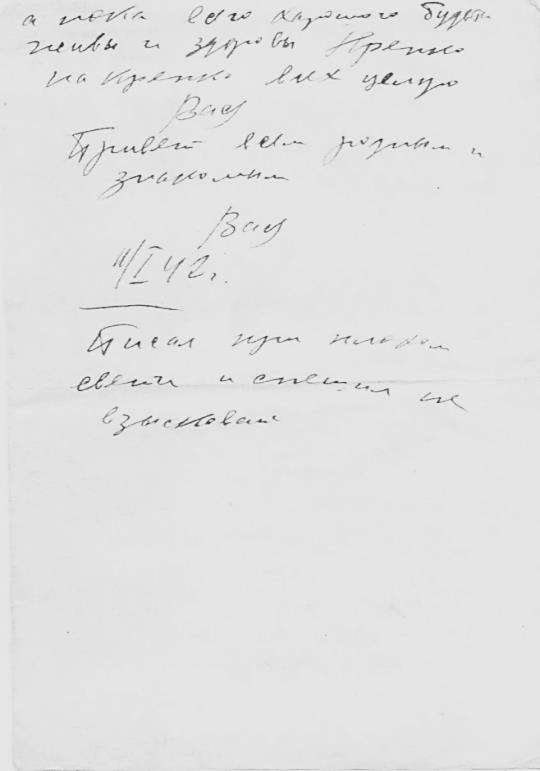 а пока всего хорошего будьте
живы и здоровы Крепко
на крепко всех целую
Вас
Привет всем родным и
знакомым
Вас
11/I 42 г.
Писал при плохом
свете и спешил не
взысковай